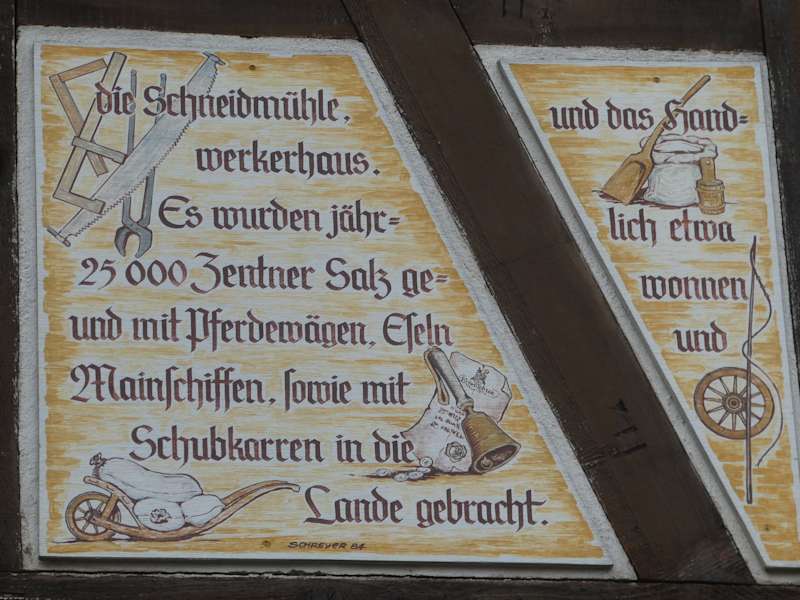 die Schneidmühle, und das Hand=
werkerhaus.
Es wurden jähr= lich etwa
25 000 Zentner Salz ge= wonnen
und mit Pferdewägen, Eſeln und
Mainſchiffen, ſowie mit
Schubkarren in die
Lande gebracht.
SCHREYER 84